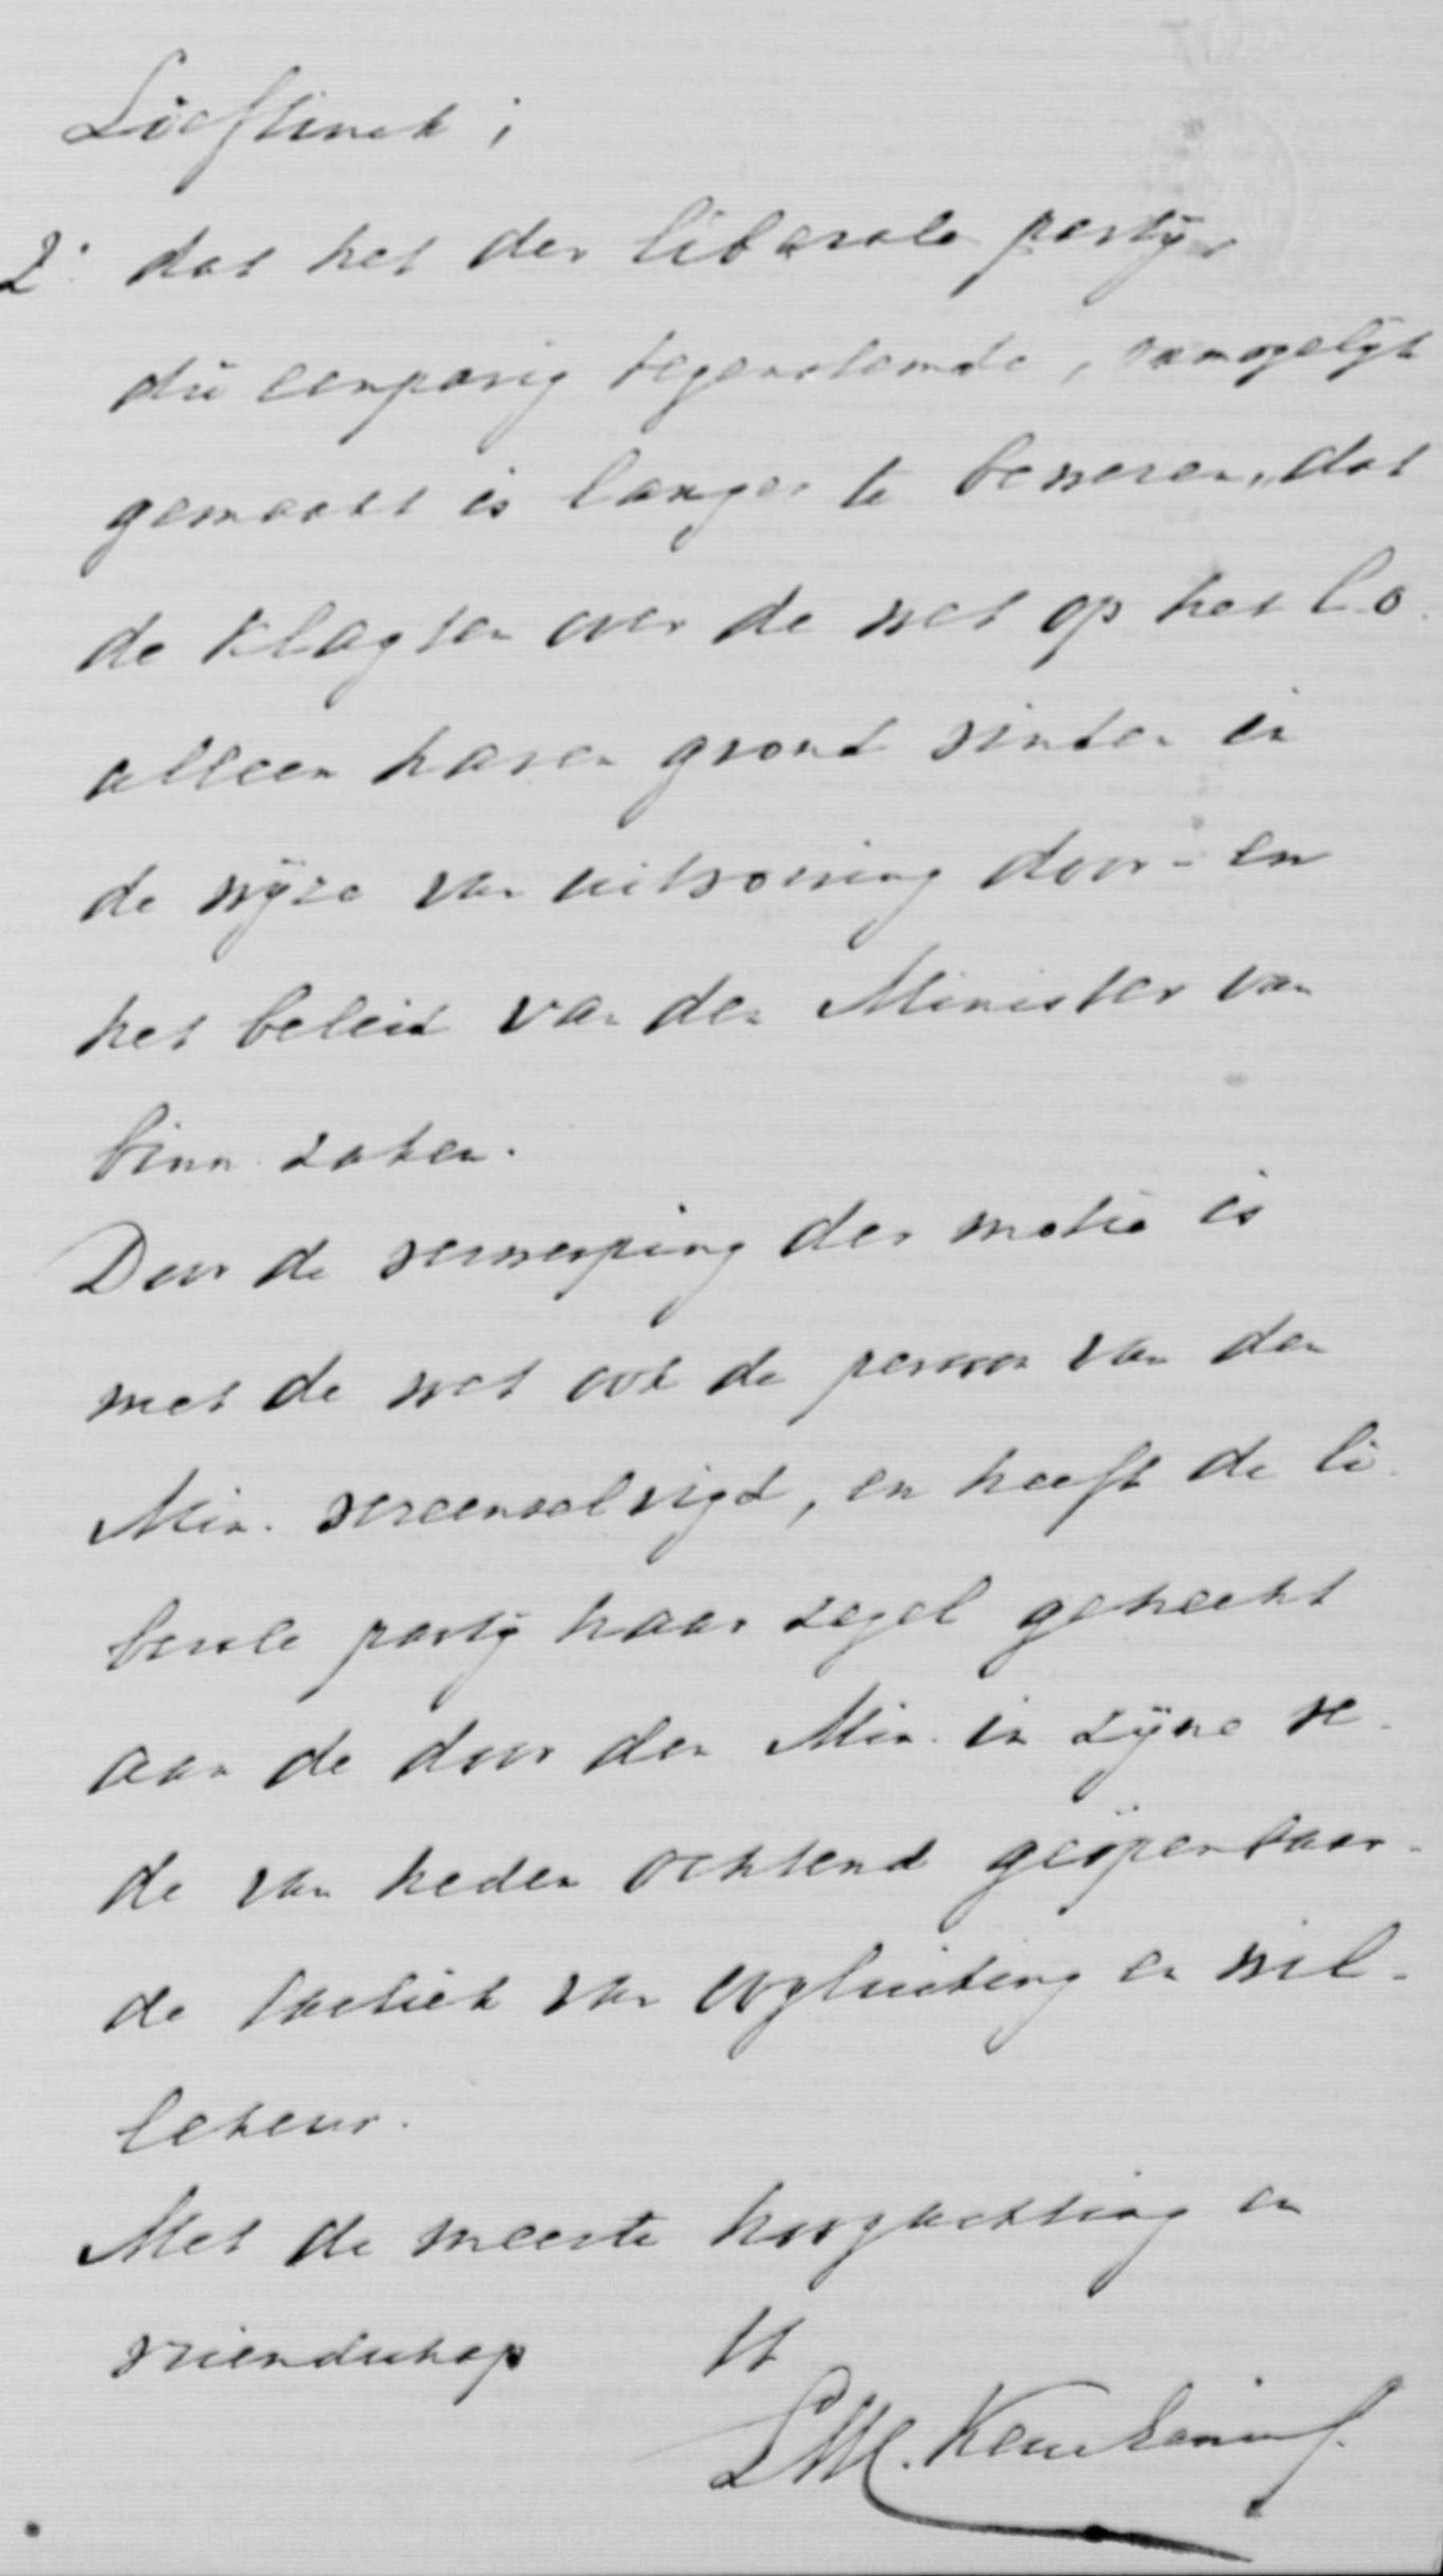 Lieftinck;
2° dat het der liberale partij,
die eenparig tegenstemde, onmogelijk
gemaakt is langer te beweren, dat
de klagten over de wet op het l.o.
alleen haren grond vinden in
de wijze van uitvoering door- en
het beleid van den Minister van
binn. zaken.
Door de verwerping der motie is
met de wet ook de persoon van den
Min. vereenzelvigd, en heeft de li-
berale partij haar zegel gehecht
aan de door den Min. in zijne re-
de van heden ochtend geöpenbaar-
de tactiek van oogluiking en wil-
lekeur.
Met de meeste hoogachting en
vriendschap